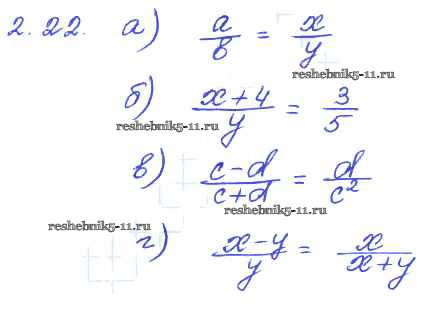 2.22. а) a/b = x/y
reshebnik5-11.ru
б) x+4/y = 3/5
reshebnik5-11.ru
в) c-d/c+d = d/c²
reshebnik5-11.ru
reshebnik5-11.ru
г) x-y/y = x/x+y